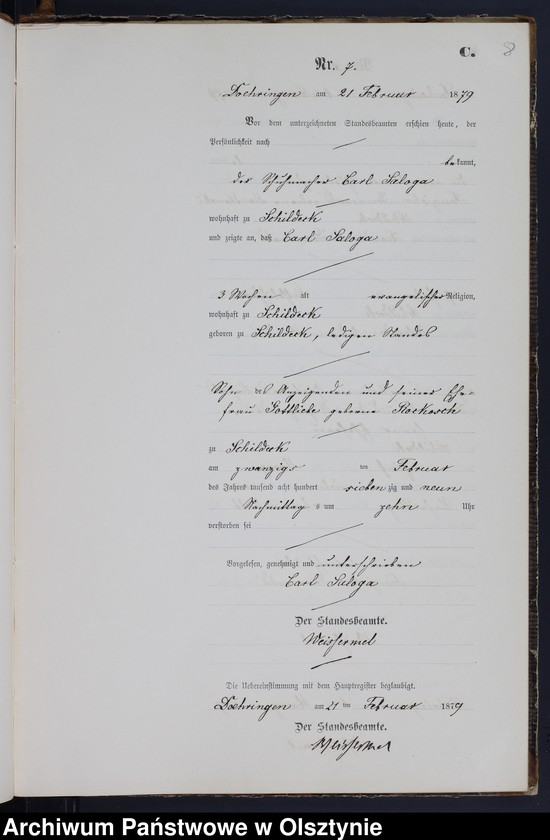 C.
8
Nr. 7.
Doehringen am 21 Februar 1879
Vor dem unterzeichneten Standesbeamten erschien heute, der
Persönlichkeit nach
bekannt,
der Schuhmacher Carl Saloga
wohnhaft zu Schildeck
und zeigte an, daß Carl Saloga
3 Wochen alt evangelischer Religion,
wohnhaft zu Schildeck
geboren zu Schildeck, ledigen Standes
Sohn des Anzeigenden und seiner Ehe-
frau Gottliebe geborne Rockosch
zu Schildeck
am zwanzigs ten Februar
des Jahres tausend acht hundert sieben zig und neun
Nachmittag s um zehn Uhr
verstorben sei
Vorgelesen, genehmigt und unterschrieben
Carl Saloga
Der Standesbeamte.
Weissermel
Die Uebereinstimmung mit dem Hauptregister beglaubigt.
Doehringen am 21 ten Februar 1879
Der Standesbeamte.
Weissermel
Archiwum Państwowe w Olsztynie